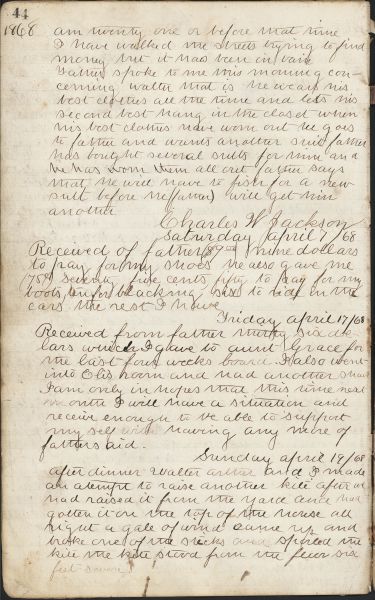 44
1868 am twenty one or before that time
I have walked the streets trying to find
money but it has been in vain
Father spoke to me this morning con-
cerning walter that is he wears his
best clothes all the time and lets his
second best hang in the closet when
his best clothes have worn out he goes
to father and wants another suit father
has bought several suits for him and
he has worn them all out father says
that he will have to fish for a new
suit before he (father) will get him
another
Charles W Jackson
Saturday april / 68
Received of father nine dollars
to pay for my shoes he also gave me
75 seventy five cents fifty to pay for my
boots for blacking six to ride in the
cars the rest I have
Friday april 17/68
Received from father thirty six dol
lars which I gave to aunt Grace for
the last four weeks board I also went
into Otis room and had another
I am only in hopes that this time next
month I will have a situation and
receive enough to be able to support
my self with having any more of
fathers aid.
Sunday april 19/68
after dinner Walter arthur and I made
an atempt to raise another kite after we
had raised it from the yard and had
gotten it on the top of the house all
right a gale of wind came up and
broke one of the sticks and spoiled the
kite the kite stood from the floor six
feet